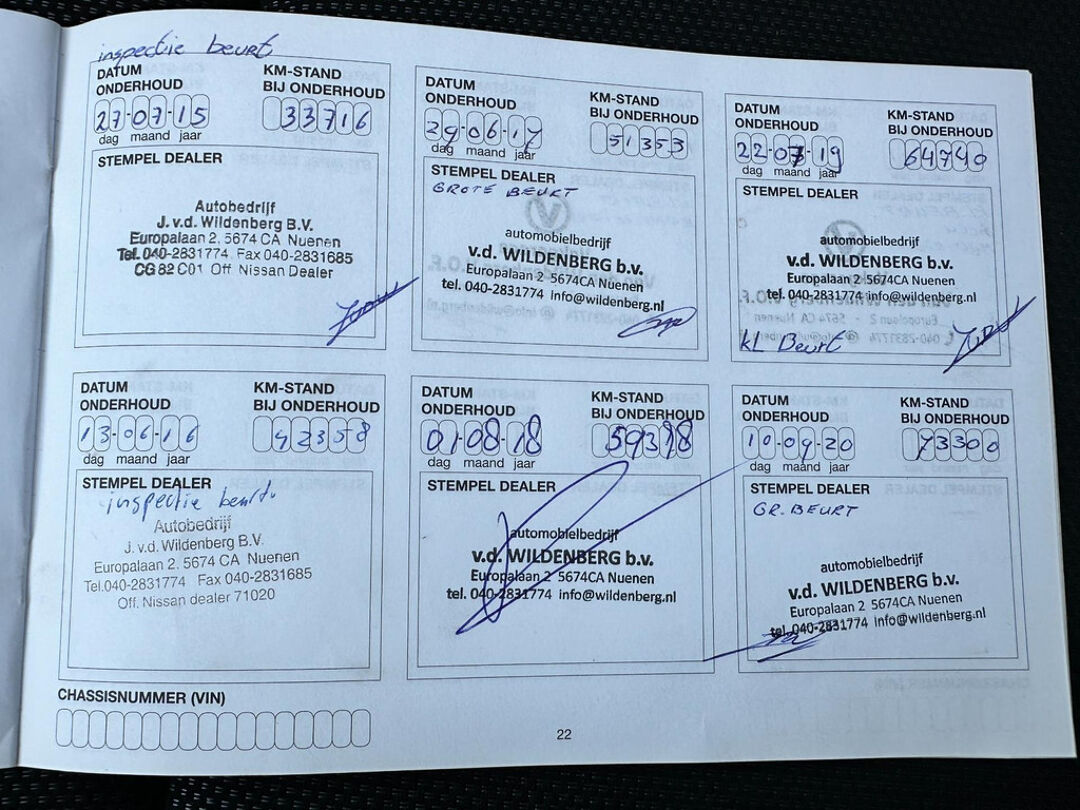 inspectie beurt
DATUM ONDERHOUD
KM-STAND BIJ ONDERHOUD
27-07-15
33716
dag maand jaar
STEMPEL DEALER
Autobedrijf
J. v.d. Wildenberg B.V.
Europalaan 2, 5674 CA Nuenen
Tel. 040-2831774 Fax 040-2831685
CG 82 C01 Off Nissan Dealer
DATUM ONDERHOUD
KM-STAND BIJ ONDERHOUD
29-06-17
51353
dag maand jaar
STEMPEL DEALER
GROTE BEURT
automobielbedrijf
v.d. WILDENBERG b.v.
Europalaan 2 5674CA Nuenen
tel. 040-2831774 info@wildenberg.nl
DATUM ONDERHOUD
KM-STAND BIJ ONDERHOUD
22-07-19
64740
dag maand jaar
STEMPEL DEALER
automobielbedrijf
v.d. WILDENBERG b.v.
Europalaan 2 5674CA Nuenen
tel. 040-2831774 info@wildenberg.nl
kL Beurt
DATUM ONDERHOUD
KM-STAND BIJ ONDERHOUD
13-06-16
42358
dag maand jaar
STEMPEL DEALER
inspectie beurt
Autobedrijf
J. v.d. Wildenberg B.V.
Europalaan 2, 5674 CA Nuenen
Tel.040-2831774 Fax 040-2831685
Off. Nissan dealer 71020
DATUM ONDERHOUD
KM-STAND BIJ ONDERHOUD
01-08-18
59398
dag maand jaar
STEMPEL DEALER
automobielbedrijf
v.d. WILDENBERG b.v.
Europalaan 2 5674CA Nuenen
tel. 040-2831774 info@wildenberg.nl
DATUM ONDERHOUD
KM-STAND BIJ ONDERHOUD
10-09-20
73300
dag maand jaar
STEMPEL DEALER
GR. BEURT
automobielbedrijf
v.d. WILDENBERG b.v.
Europalaan 2 5674CA Nuenen
tel. 040-2831774 info@wildenberg.nl
CHASSISNUMMER (VIN)
22